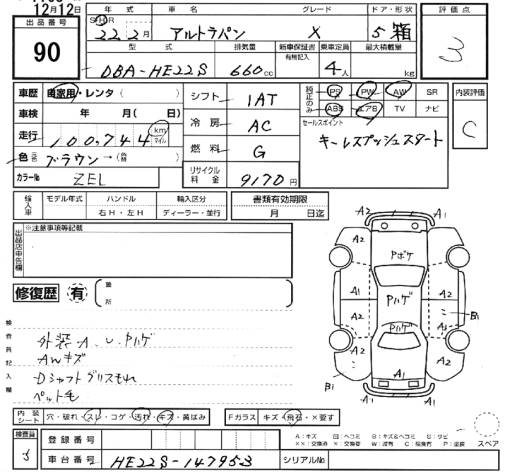 12月12日
出品番号 90
年式 S・H・R 22.2月
車名 アルトラパン
グレード X
ドア・形状 5 箱
評価点 3
型式 DBA-HE22S
排気量 660cc
新車保証書 有無記入
乗車定員 4人
最大積載量 kg
車歴 自家用・レンタ( )
車検 年 月( )
走行 100,744 km マイル
色 ブラウン→
カラーNo ZEL
シフト 1AT
冷房 AC
燃料 G
リサイクル料金 9170円
純正のみ PS PW AW SR
ABS エアB TV ナビ
内装評価 C
セールスポイント
キーレスプッシュスタート
輸入車 モデル年式 ハンドル 右H・左H 輸入区分 ディーラー・並行
書類有効期限 月 日迄
出品店申告欄 ※注意事項等記載
修復歴 有
箇所
検査員記入欄
外装A.U.Pハゲ
AWキズ
Dシャフトグリスもれ
ペット毛
A2 A1 A1 A2
A2 Pボケ A2
A1 Pハゲ A2 B1
A2 Pハゲ A2
B1 A1 A1
内装シート 穴・破れ・スレ・コゲ・汚れ・キズ・黄ばみ
Fガラス キズ・飛石・X要す
検査員
登録番号
車台番号 HE22S-147953
シリアルNo
A:キズ U:ヘコミ B:キズ&ヘコミ S:サビ
XX:交換済 X:交換要 W:波有 C:腐食有 P:塗装
スペア